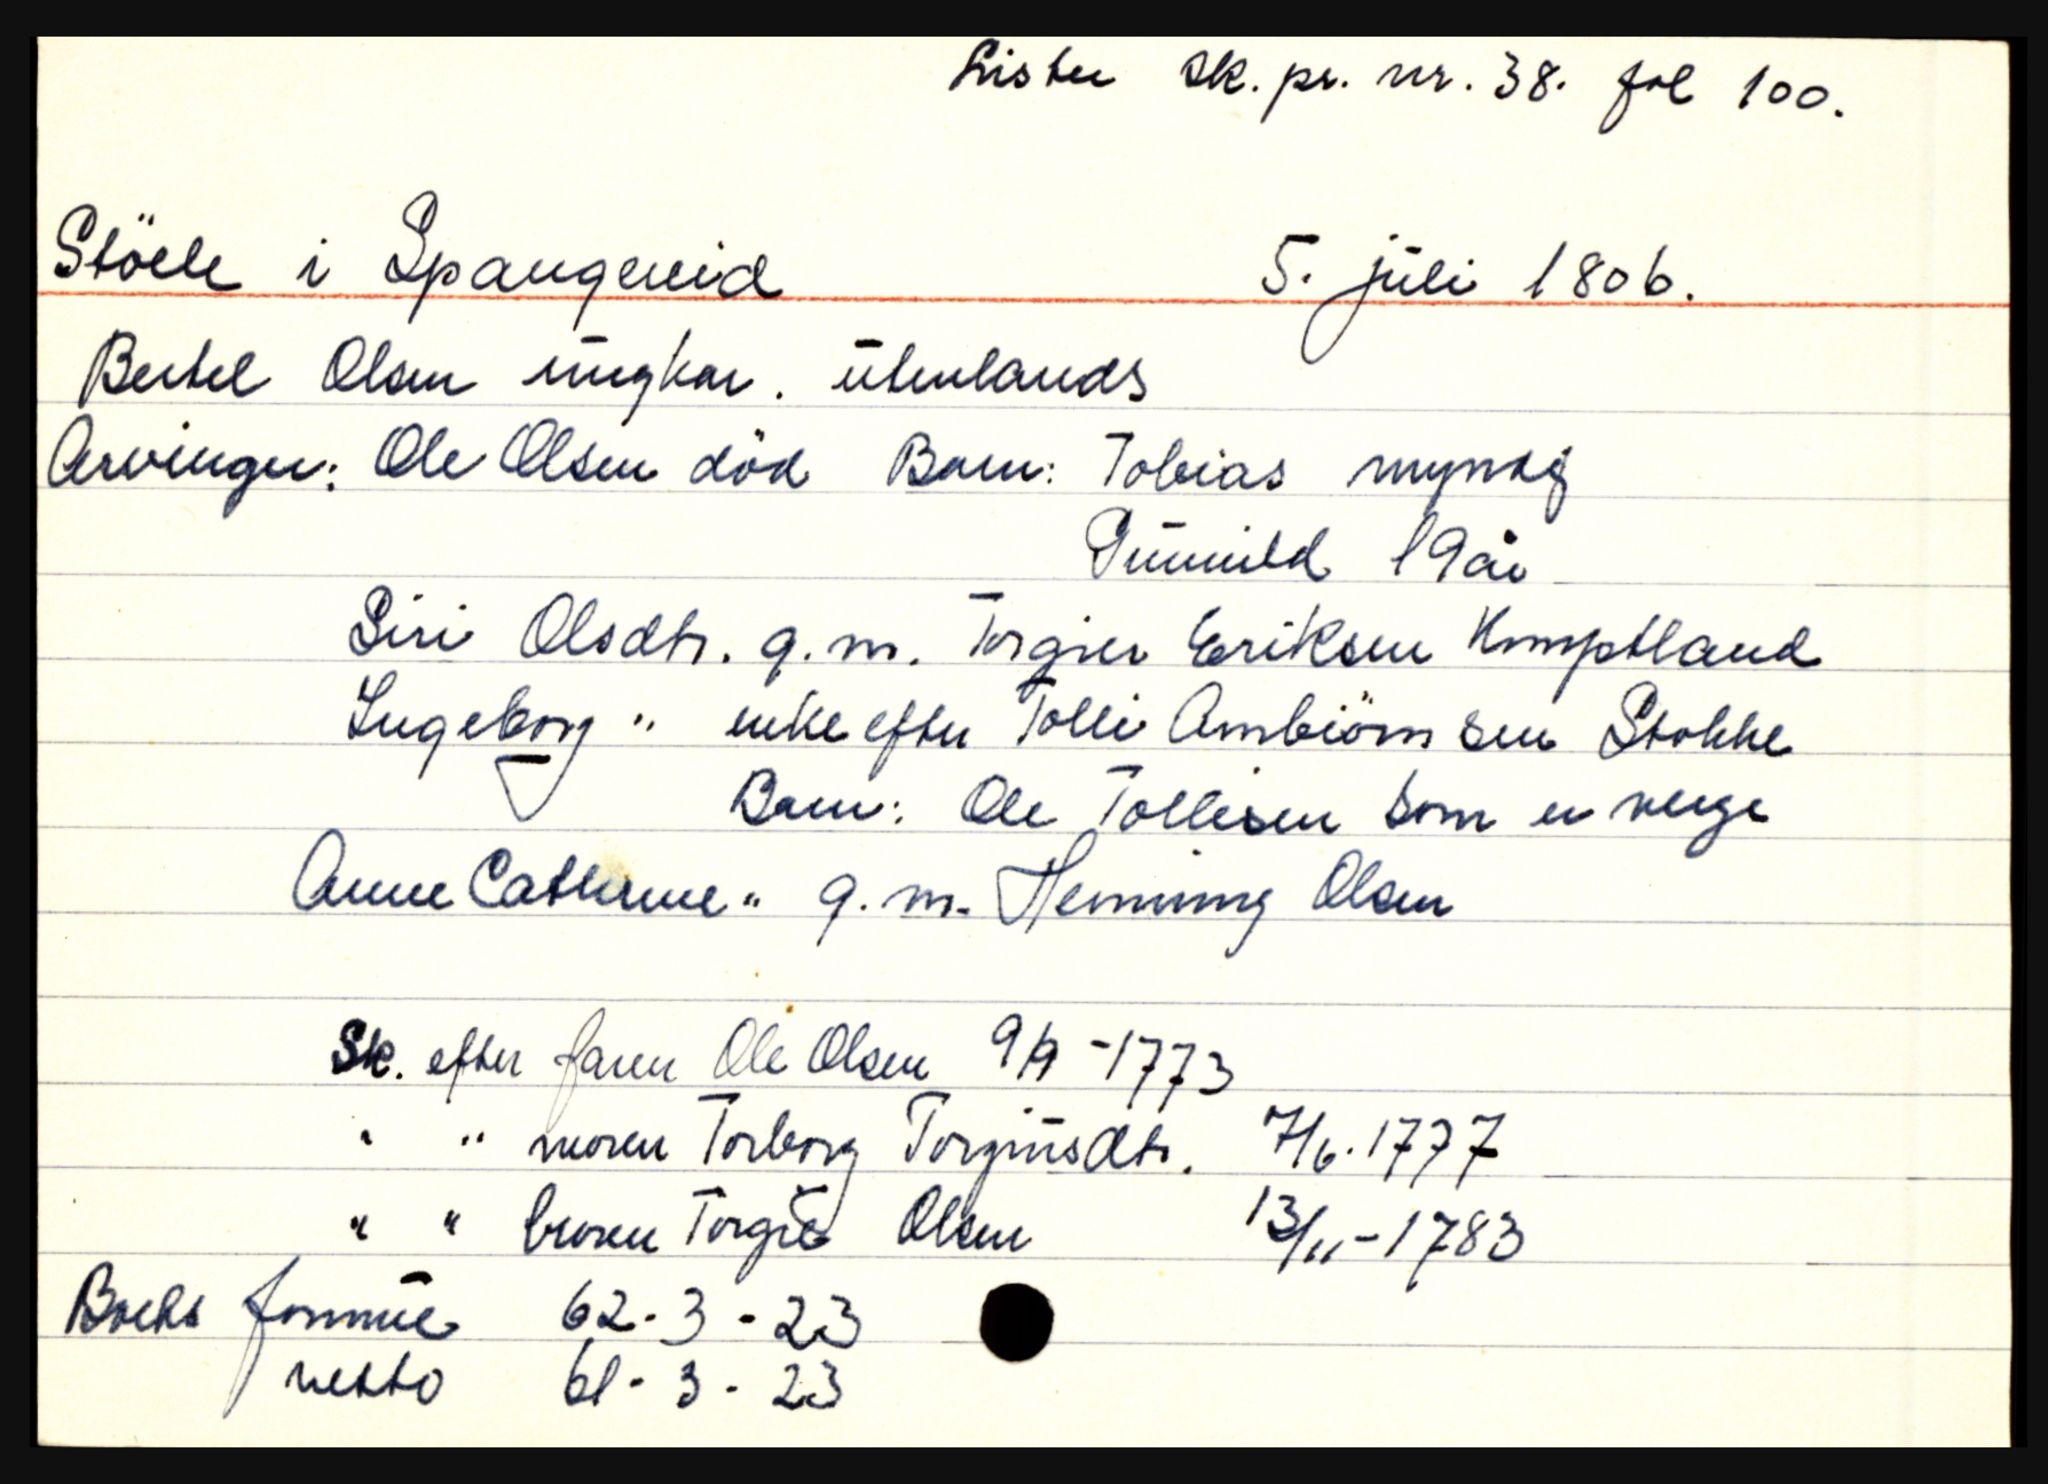 Lister sk. pr. nr. 38. fol 100.
Støele i Spangereid 5. juli 1806.
Bertel Olsen ungkar. utenlands
Arvinger: Ole Olsen död Barn: Tobias myndig
Gunnild 19 år
Siri Olsdtr. g. m. Torgier Eriksen Kumpstland
Ingeborg " enke efter Tolli Ambiörnsen Stokke
Barn: Ole Tollisen som er verge
Anne Cathrine " g. m. Henning Olsen
Sk. efter faren Ole Olsen 9/9 - 1773
" " moren Torborg Torgiusdtr. 7/6. 1777
" " broren Torgie Olsen 13/11 - 1783
Boets formue 62 - 3 - 23
netto 61 - 3 - 23